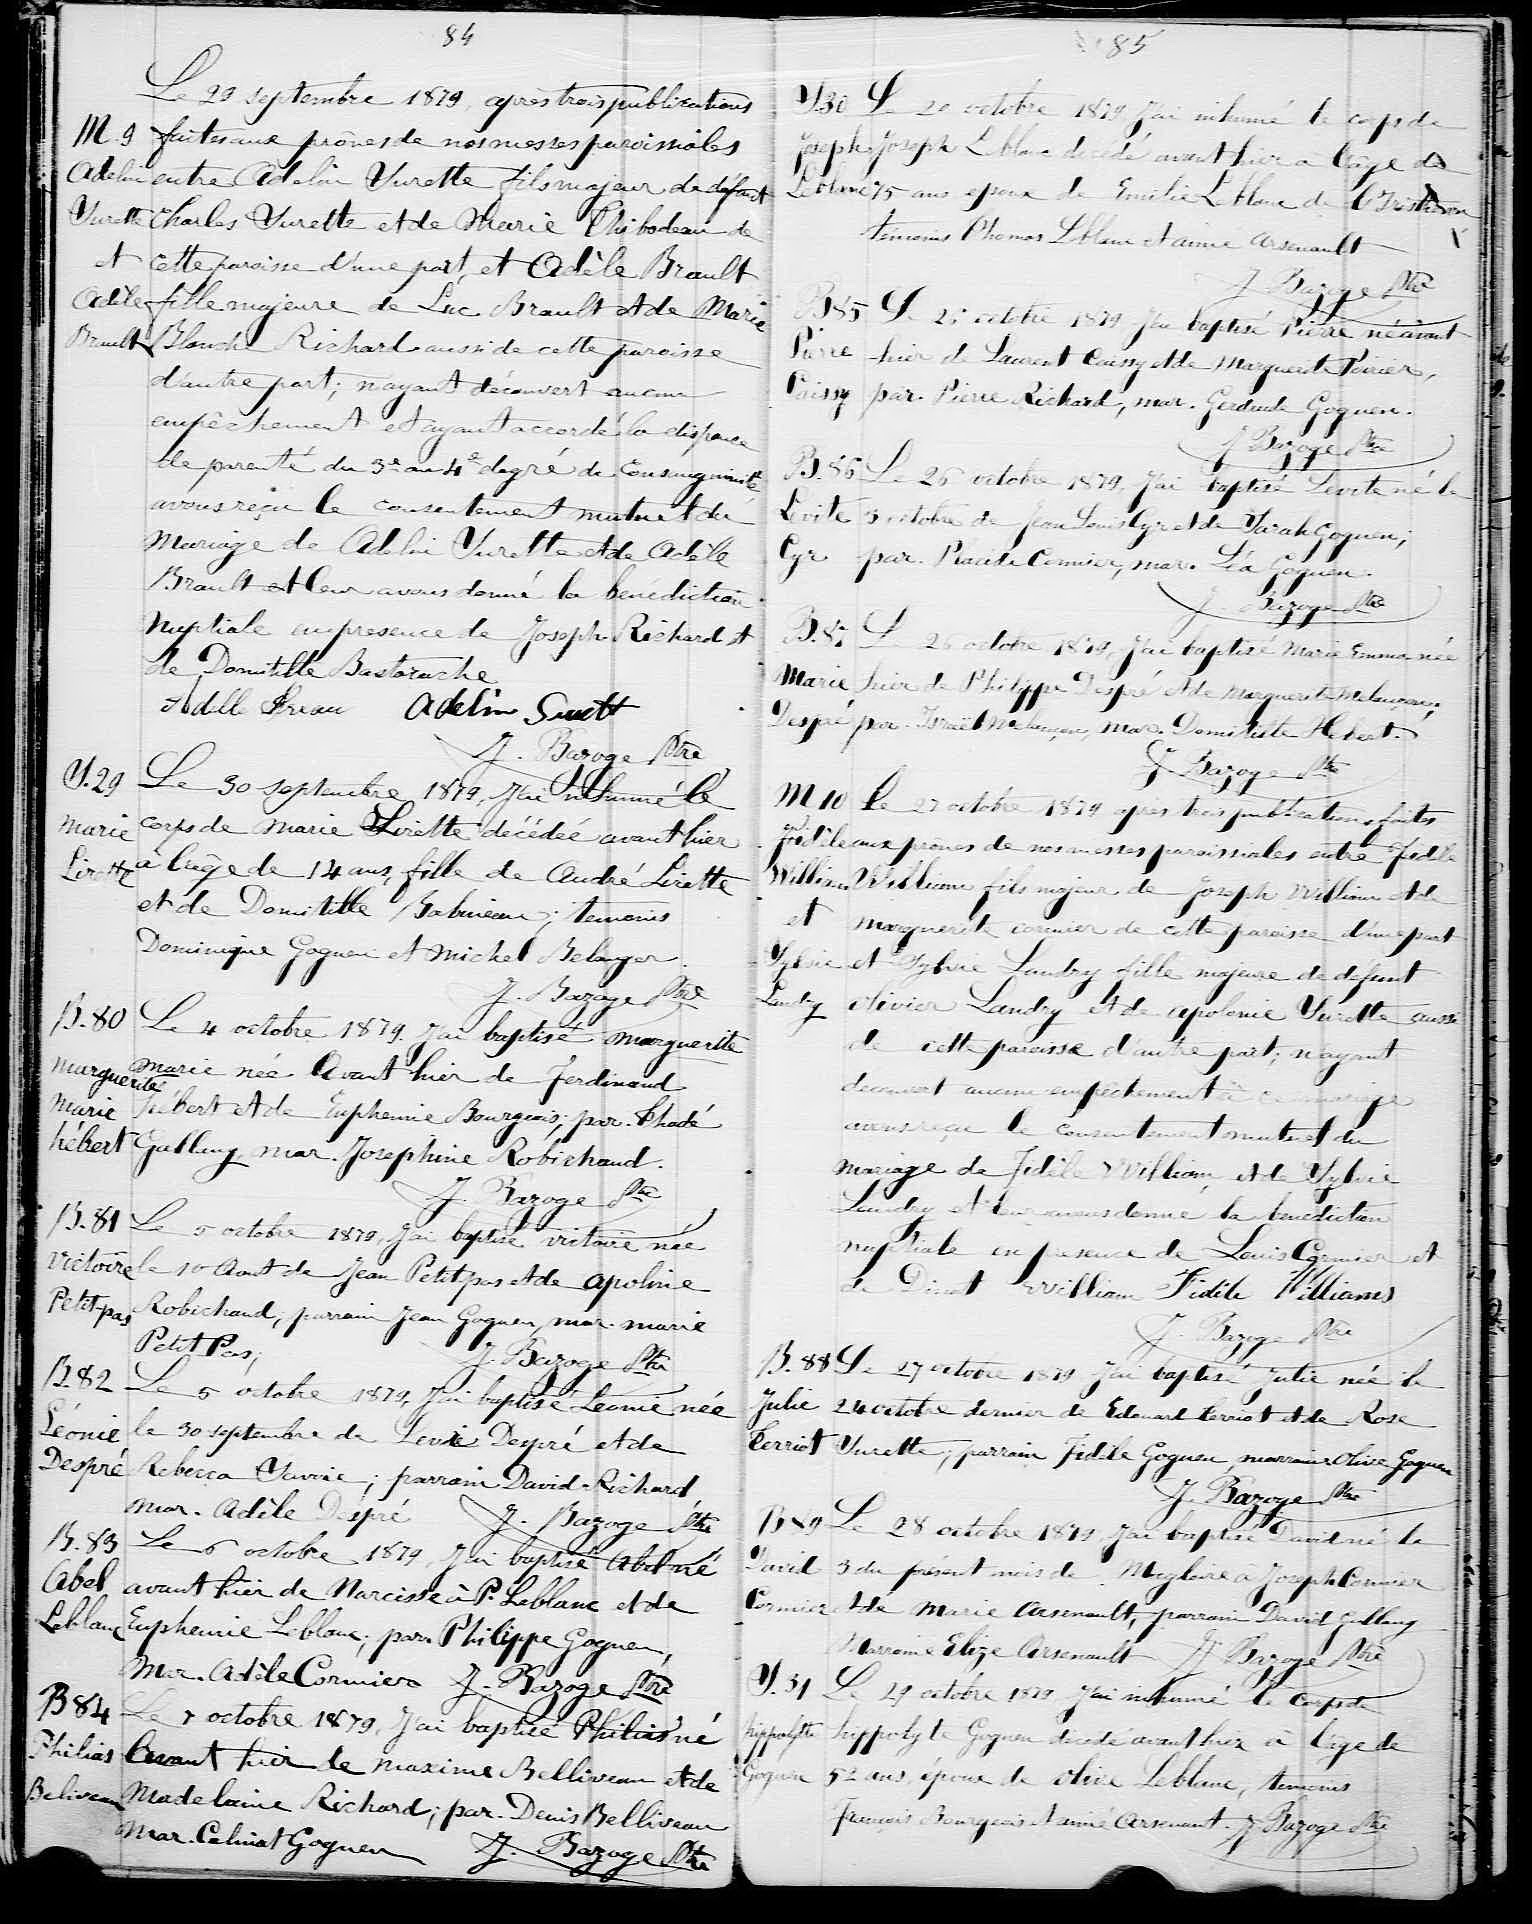 84
Le 29 septembre 1879, après trois publications
M.9 faites aux prônes de nos messes paroissiales
Adelin entre Adelin Surette fils majeur de défunt
Surette Charles Surette et de Marie Thibodeau de
et cette paroisse d'une part, et Adèle Brault
Adèle fille majeure de Luc Brault et de Marie
Brault Blanche Richard aussi de cette paroisse
d'autre part; n'ayant découvert aucun
empêchement et ayant accordé la dispense
de parenté du 3e au 4e degré de consanguinité
avons reçu le consentement mutuel du
Mariage de Adelin Surette et de Adèle
Brault et leur avons donné la bénédiction
Nuptiale en presence de Joseph Richard et
de Domitille Bastarache
Adelle Adelin Surett
J. Bazoge Ptre
S.29 Le 30 septembre 1879, J'ai inhumé le
Marie corps de Marie Lirette décédée avant hier
Lirette à l'age de 14 ans, fille de André Lirette
et de Domitille Babineau; temoins
Dominique Goguen et Michel Belanger.
J. Bazoge Ptre
B.80 Le 4 octobre 1879. J'ai baptisé marguerite
marguerite marie née avant hier de Ferdinand
Marie hébert et de Euphemie Bourgeois; par. Thadé
hébert Gallang, mar. Josephine Robichaud.
J. Bazoge Ptre
B.81 Le 5 octobre 1879, J'ai baptisé victoire née
victoire le 10 Aout de Jean Petitpas et de apoline
Petit-pas Robichaud, parrain Jean Goguen, mar. marie
Petit Pas;
J. Bazoge Ptre
B.82 Le 5 octobre 1879, J'ai baptisé Léonie née
Léonie le 30 septembre de Despré et de
Despré Rebecca Savoie; parrain David Richard
mar. Adèle Dépré J. Bazoge Ptre
B.83 Le 6 octobre 1879, J'ai baptisé Abel né
Abel avant hier de Narcisse à P. Leblanc et de
Leblanc Euphemie Leblanc; par. Philippe Goguen,
Mar. Adèle Cormier J. Bazoge Ptre
B84 Le 7 octobre 1879, J'ai baptisé Philias né
Philias avant hier de maxime Belliveau et de
Beliveau Madelaine Richard; par. Denis Belliveau
Mar. Goguen J. Bazoge Ptre
85
S30 Le 20 octobre 1879 J'ai inhumé le corps de
Joseph Joseph Leblanc décédé avant hier a l'âge de
Leblanc 75 ans epoux de Emilie Leblanc de
temoins Thomas Leblanc et aimé Arsenault
J. Bazoge Ptre
B85 Le 25 octobre 1879 J'ai baptisé Pierre né avant
Pierre hier de Laurent Caissy et de Marguerite Poirier,
Caissy par. Pierre Richard, mar. Gertrude Goguen.
J Bazoge Ptre
B.86 Le 26 octobre 1879, J'ai baptisé Levite né le
Levite 3 octobre de Jean Louis Cyr et de Sarah Goguen;
Cyr par. Placide Cormier, mar. Léa Goguen.
J. Bazoge Ptre
B.87 Le 26 octobre 1879, J'ai baptisé Marie Emma née
Marie hier de Philippe Despré et de Marguerite Melançon;
Despré par. Israël Melançon, mar. Domitilde Hebert.
J Bazoge Ptre
M 10 Le 27 octobre 1879 après trois publications faites
Fidèle aux prônes de nos messes paroissiales entre Fidèle
William William fils majeur de Joseph William et de
et marguerite cormier de cette paroisse d'une part
Sylvie et Sylvie Landry fille majeure de defunt
Landry olivier Landry et de apolonie Surette aussi
de cette paroisse d'autre part; n'ayant
decouvert aucun empêchement à ce mariage
avons reçu le consentement mutuel du
mariage de Fidèle William et de Sylvie
Landry et leur avons donné la benediction
nuptiale en presence de Louis Cormier et
de William Fidèle Williams
J. Bazoge Ptre
B.88 Le 27 octobre 1879 J'ai baptisé Julie née le
Julie 24 octobre dernier de Edouard Terriot et de Rose
Terriot Surette; parrain Fidèle Goguen, marraine Olive Goguen
J. Bazoge Ptre
B89 Le 28 octobre 1879, J'ai baptisé David né le
David 3 du présent mois de Magloire a Joseph Cormier
Cormier et de Marie Arsenault, parrain David Gallang
Marraine Elize Arsenault J Bazoge Ptre
S.31 Le 29 octobre 1879 J'ai inhumé le corps de
hippolyte hippolyte Goguen decedé avant hier a l'age de
Goguen 52 ans, époux de Olive Leblanc, temoins
François Bourgeois et aimé Arsenaut. J Bazoge Ptre